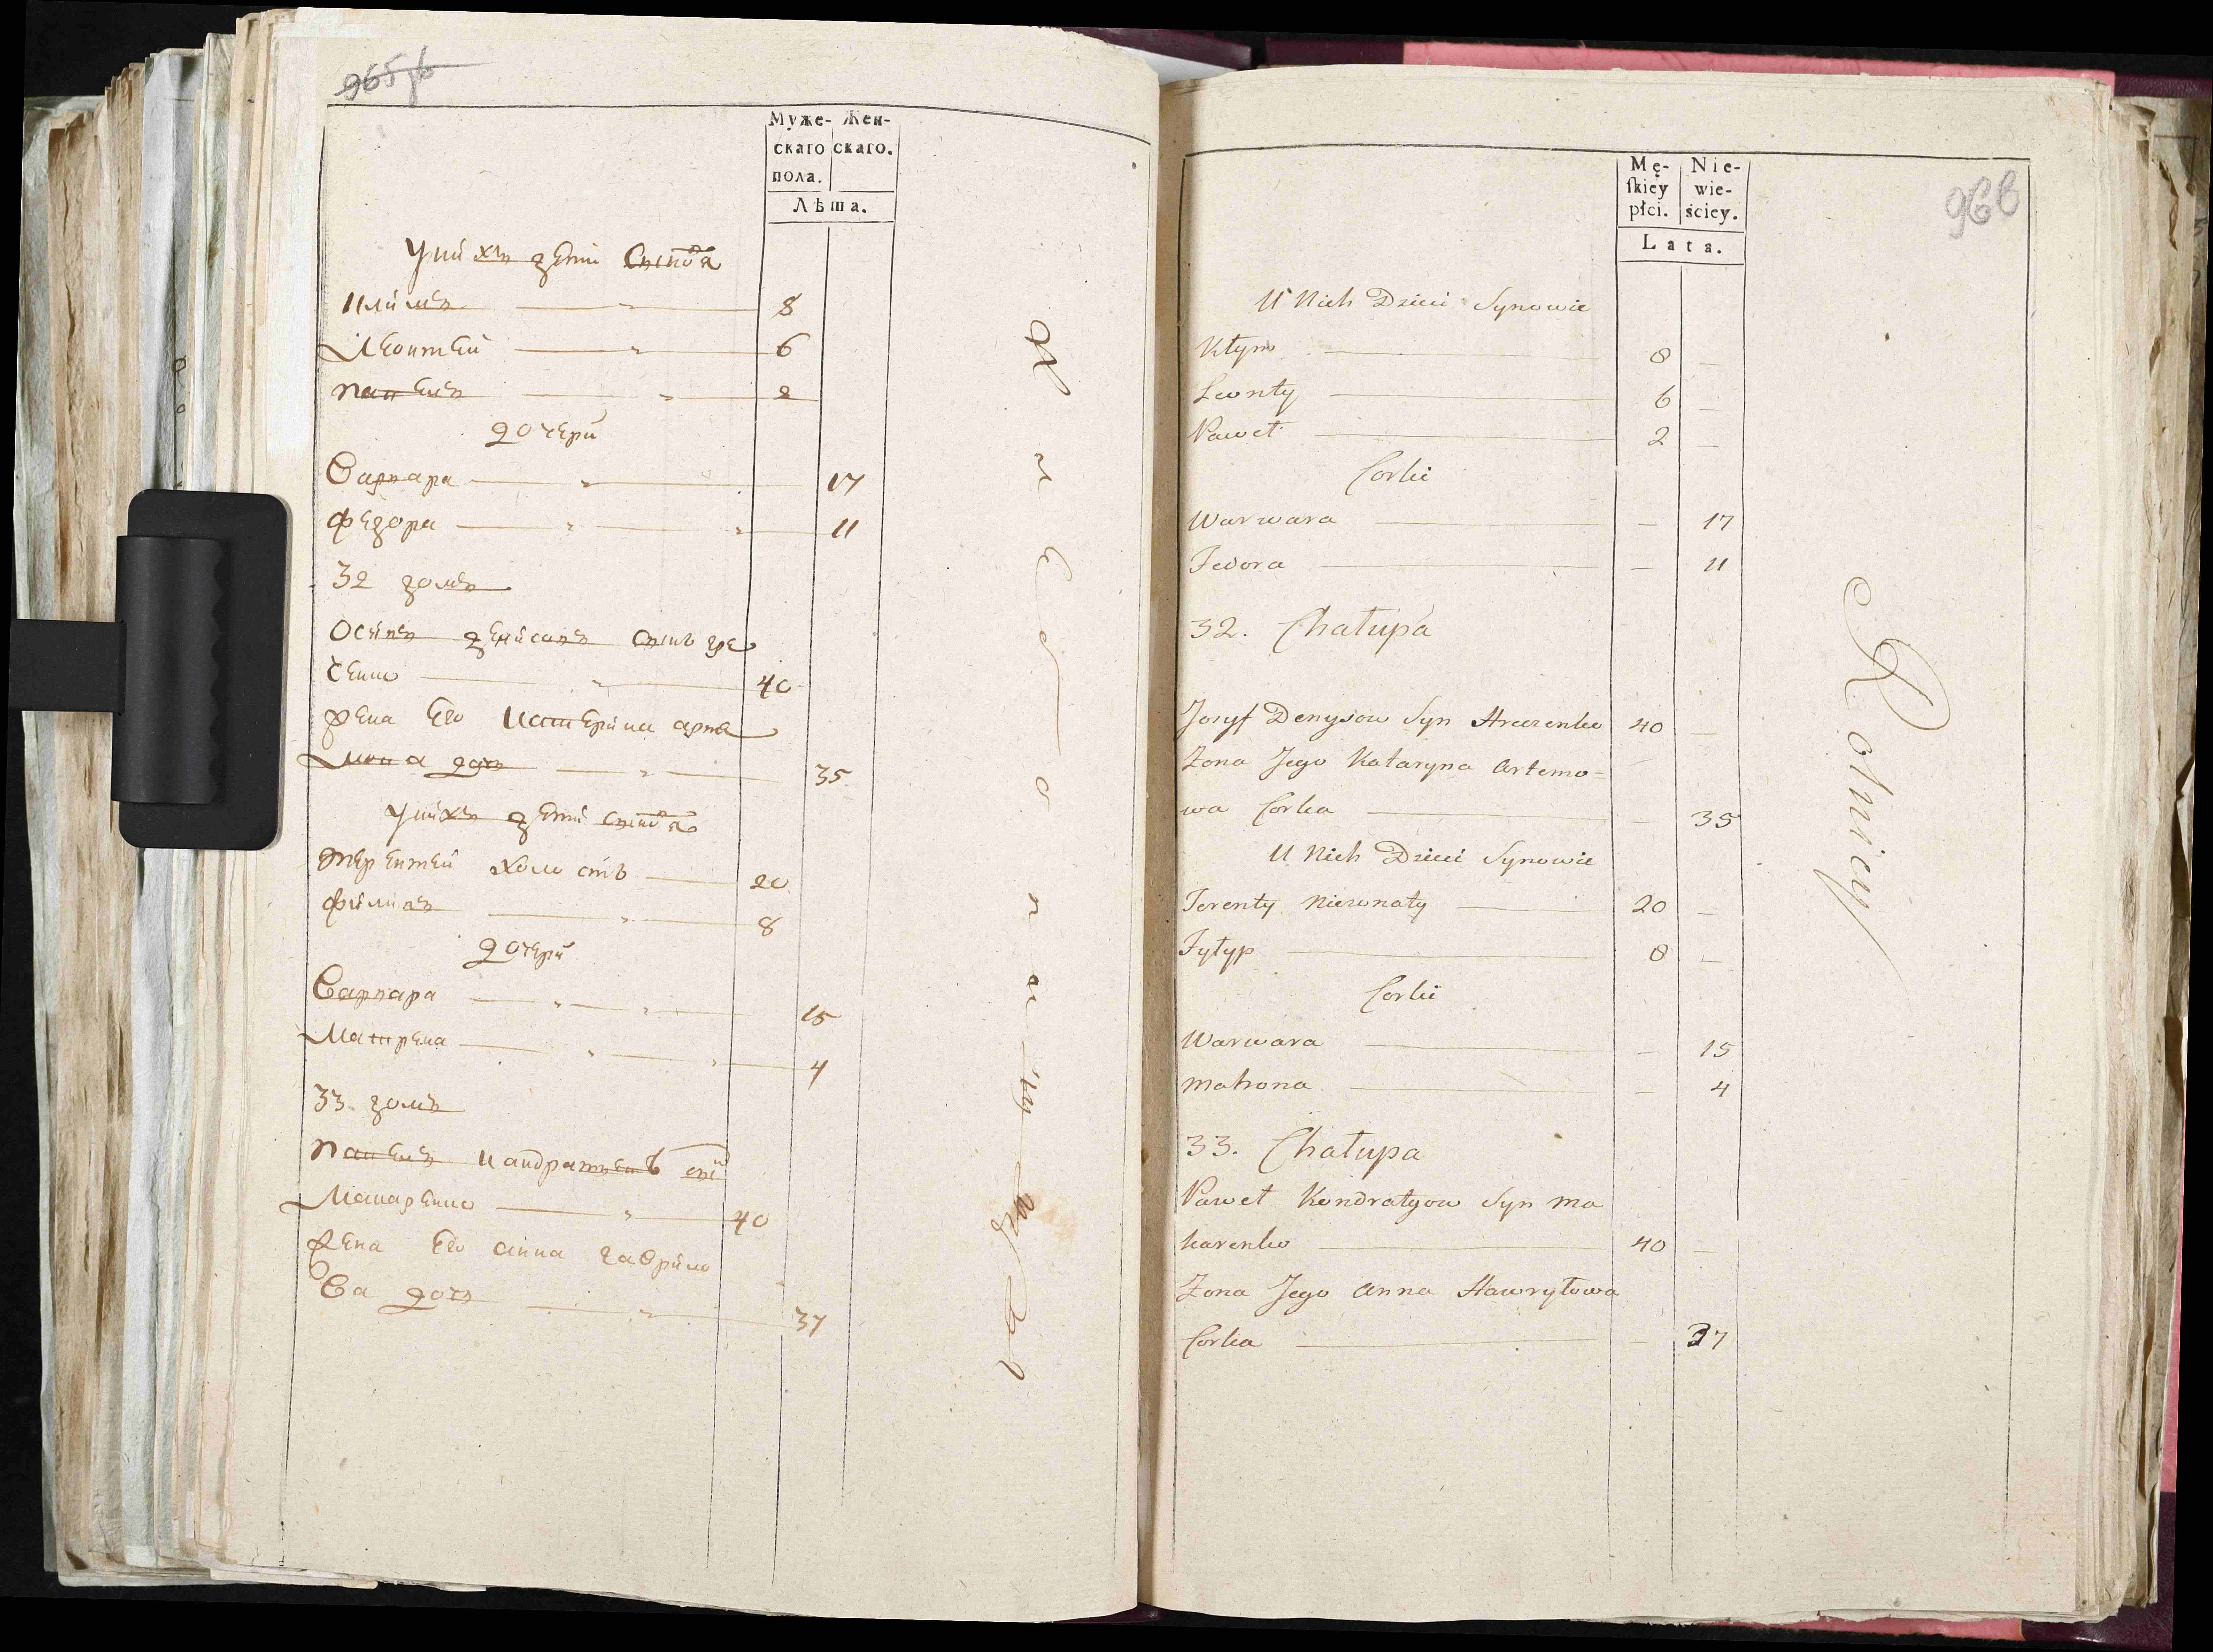 Муже- Жен-
скаго скаго.
пола.
Лѣта.
У них дети сынов̾я
Клим 8
Леонтей 6
павел 2
дочери
Варвара 17
Федора 11
32 дом
Осип денисов сынъ гре
ченко 40
жена Его катерина арте
мова доч 35
У них дети сынов̾я
терентей холостъ 20
филип 8
дочери
Варвара 15
Матрена 4
33 домъ
павел кандратьевъ сын
Макаренко 40
жена Его анна гаврило
ва доч 37
968
Mę- Nie-
ſkiey wie-
płci. ściey.
Lata.
U Nich Dzieci Synowie
Kłym 8 —
Leonty 6 —
Paweł 2 —
Corki
Warwara — 17
Fedora — 11
32. Chałupa
Josyf Denysow Syn Hreczenko 40 —
Zona Jego Kataryna Artemo=
wa Corka — 35
U Nich Dzieci Synowie
Terenty Niezonaty 20 —
Fyłyp 8 —
Corki
Warwara — 15
Matrona — 4
33. Chałupa
Paweł Kondratyow Syn Ma
karenko 40 —
Zona Jego Anna Hawryłowa
Corka — 37
Rolnicy